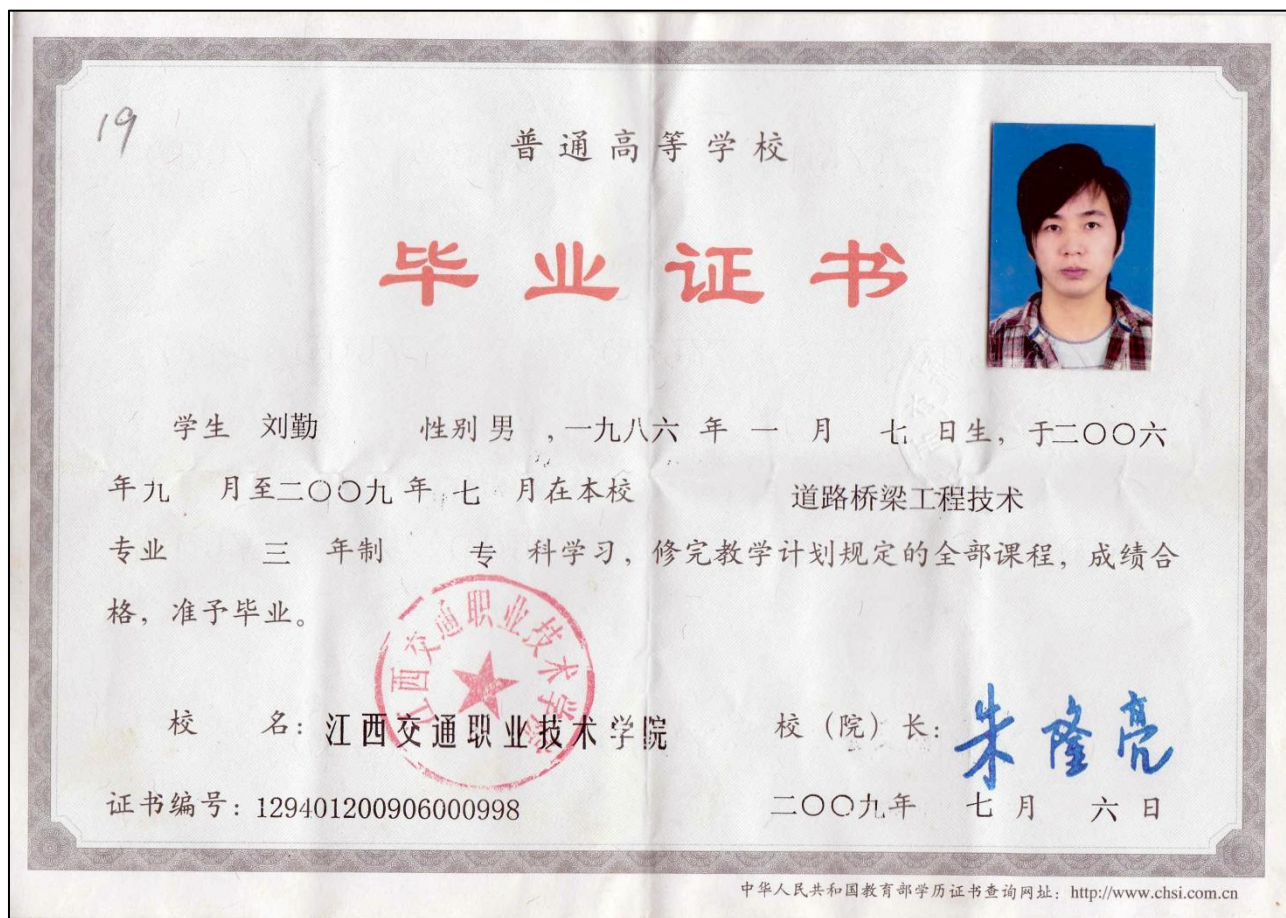 19
普通高等学校
毕业证书
学生 刘勤 性别 男 ,一九八六 年 一 月 七 日生, 于二〇〇六
年九 月至二〇〇九 年 七 月在本校 道路桥梁工程技术
专业 三 年制 专 科学习, 修完教学计划规定的全部课程, 成绩合
格, 准予毕业。
江西交通职业技术学院
校 名: 江西交通职业技术学院 校 (院) 长: 朱隆亮
证书编号: 129401200906000998 二〇〇九年 七 月 六 日
中华人民共和国教育部学历证书查询网址: http://www.chsi.com.cn